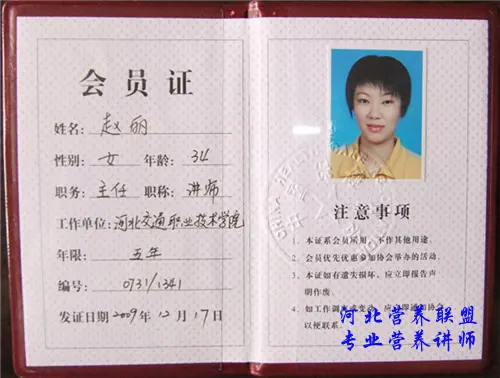 会员证
姓名: 赵丽
性别: 女 年龄: 34
职务: 主任 职称: 讲师
工作单位: 河北交通职业技术学院
年限: 五年
编号: 0731/1341
发证日期 2009年 12月 17日
注意事项
1. 本证系会员所用，不作其他用途。
2. 会员优先优惠参加协会举办的活动。
3. 本证如有遗失损坏，应立即报告声
明作废。
4. 如工作调离或变动，应立即通知协会
以便联系。
河北营养联盟
专业营养讲师